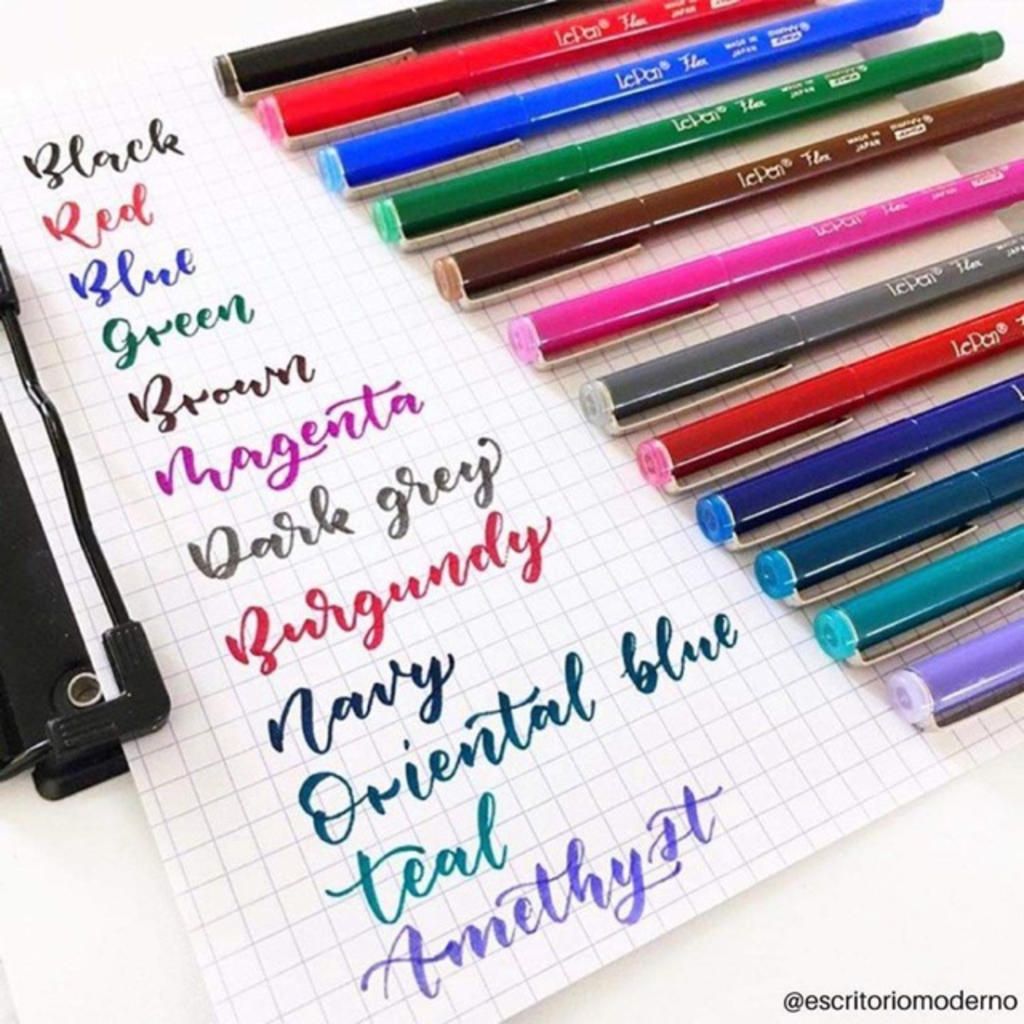 Black
Red
Blue
Green
Brown
Magenta
Dark grey
Burgundy
Navy
Oriental blue
Teal
Amethyst
LePen® Flex JAPAN
LePen® Flex MADE IN JAPAN
LePen® Flex MADE IN JAPAN
LePen® Flex MADE IN JAPAN
LePen® Flex MADE IN JAPAN
LePen® Flex
LePen®
@escritoriomoderno